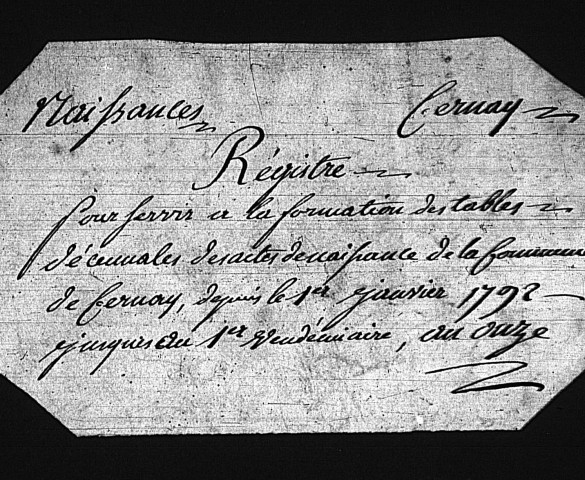 Naissances Cernay
Régistre
pour servir a la formation des tables
décennales des actes de naissance de la Commune
de Cernay, depuis le 1er janvier 1792
jusques au 1er Vendémiaire, an onze